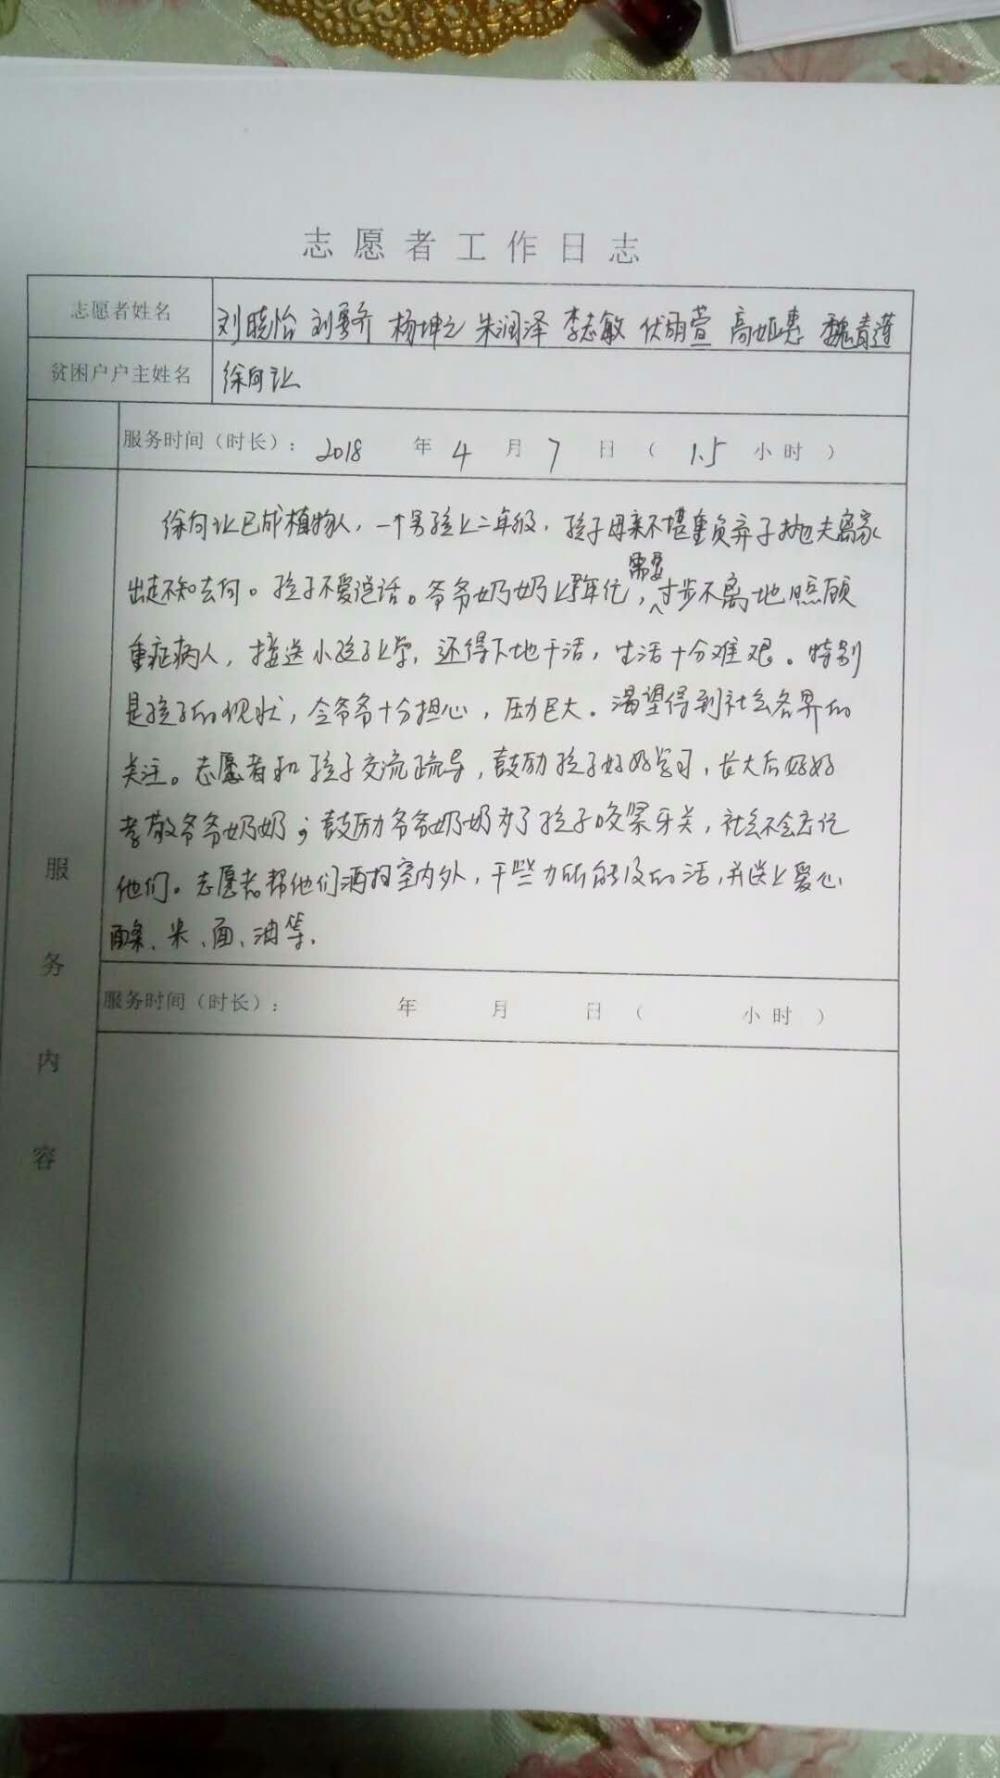 志愿者工作日志
志愿者姓名 刘晓怡 杨坤之 朱润泽 李志敏 伏丽萱 高姬惠 魏青莲
贫困户户主姓名 徐向让
服务时间（时长）： 2018 年 4 月 7 日（ 1.5 小时）
徐向让已成植物人，一个男孩上二年级，孩子母亲不堪重负弃子抛夫离家
出走不知去向。孩子不爱说话。爷爷奶奶上年纪，需要寸步不离地照顾
重症病人，接送小孩子上学，还得下地干活，生活十分难艰。特别
是孩子的现状，令爷爷十分担心，压力巨大。渴望得到社会各界的
关注。志愿者和孩子交流疏导，鼓励孩子好好学习，长大后好好
孝敬爷爷奶奶；鼓励爷爷奶奶为了孩子咬紧牙关，社会不会忘记
他们。志愿者帮他们洒扫室内外，干些力所能及的活，并送上爱心
米、面、油等.
服务时间（时长）： 年 月 日（ 小时）
服务内容